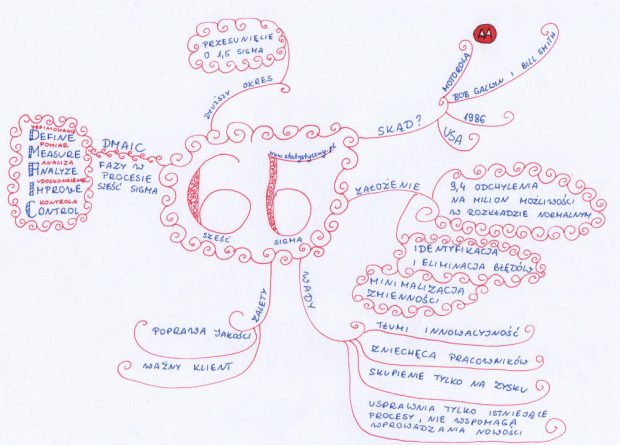 PRZESUNIĘCIE
O 1,5 SIGMA
DŁUŻSZY OKRES
MOTOROLA
BOB GALVIN I BILL SMITH
1986
USA
SKĄD?
DEFINIOWANIE
DEFINE
POMIAR
MEASURE
ANALIZA
ANALYZE
UDOSKONALENIE
IMPROWE
KONTROLA
CONTROL
DMAIC
FAZY W
PROCESIE
SZEŚĆ SIGMA
www.statystyczny.pl
6σ
SZEŚĆ
SIGMA
ZAŁOŻENIE
3,4 ODCHYLENIA
NA MILION MOŻLIWOŚCI
W ROZKŁADZIE NORMALNYM
IDENTYFIKACJA
I ELIMINACJA BŁĘDÓW
MINIMALIZACJA
ZMIENNOŚCI
ZALETY
POPRAWA JAKOŚCI
WAŻNY KLIENT
WADY
TŁUMI INNOWACYJNOŚĆ
ZNIECHĘCA PRACOWNIKÓW
SKUPIENIE TYLKO NA ZYSKU
USPRAWNIA TYLKO ISTNIEJĄCE
PROCESY, NIE WSPOMAGA
WPROWADZANIA NOWOŚCI